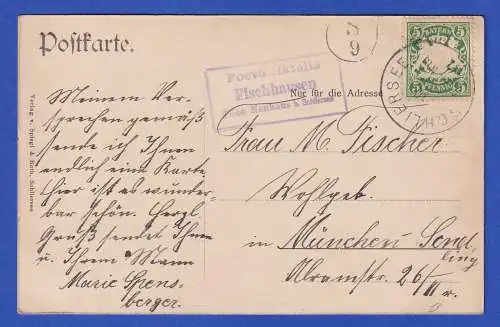 Postkarte.
9
BAYERN
5 5
PFENNIG
SCHLIERSEE
Posthilfstelle
Fischhausen
Neuhaus b. Schliersee
Nur für die Adresse
Verlag v. Spiegl & Schliersee
Meinem Ver-
sprechen gemäß
sende ich Ihnen
endlich eine Karte,
hier ist es wunder-
bar schön. Herzl.
Gruß sendet Ihnen
u. Ihrem Mann
Marie Spens-
berger.
Frau M. Fischer
Wohlgeb.
in München-Send-
ling
26/II r.